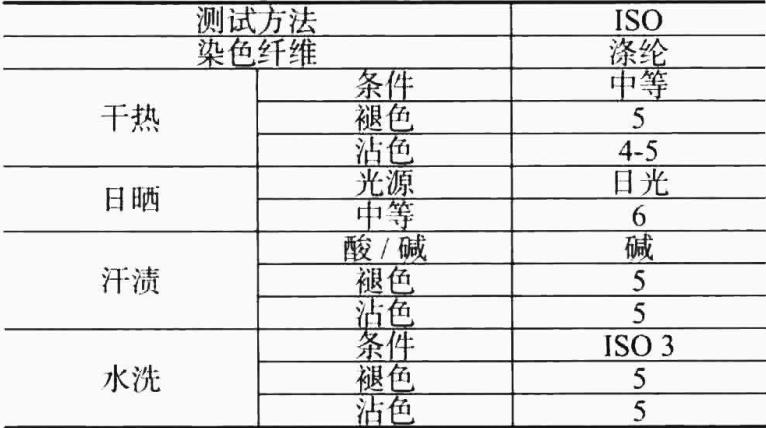 测试方法 ISO
染色纤维 涤纶
干热 条件 中等
褪色 5
沾色 4-5
日晒 光源 日光
中等 6
汗渍 酸 / 碱 碱
褪色 5
沾色 5
水洗 条件 ISO 3
褪色 5
沾色 5